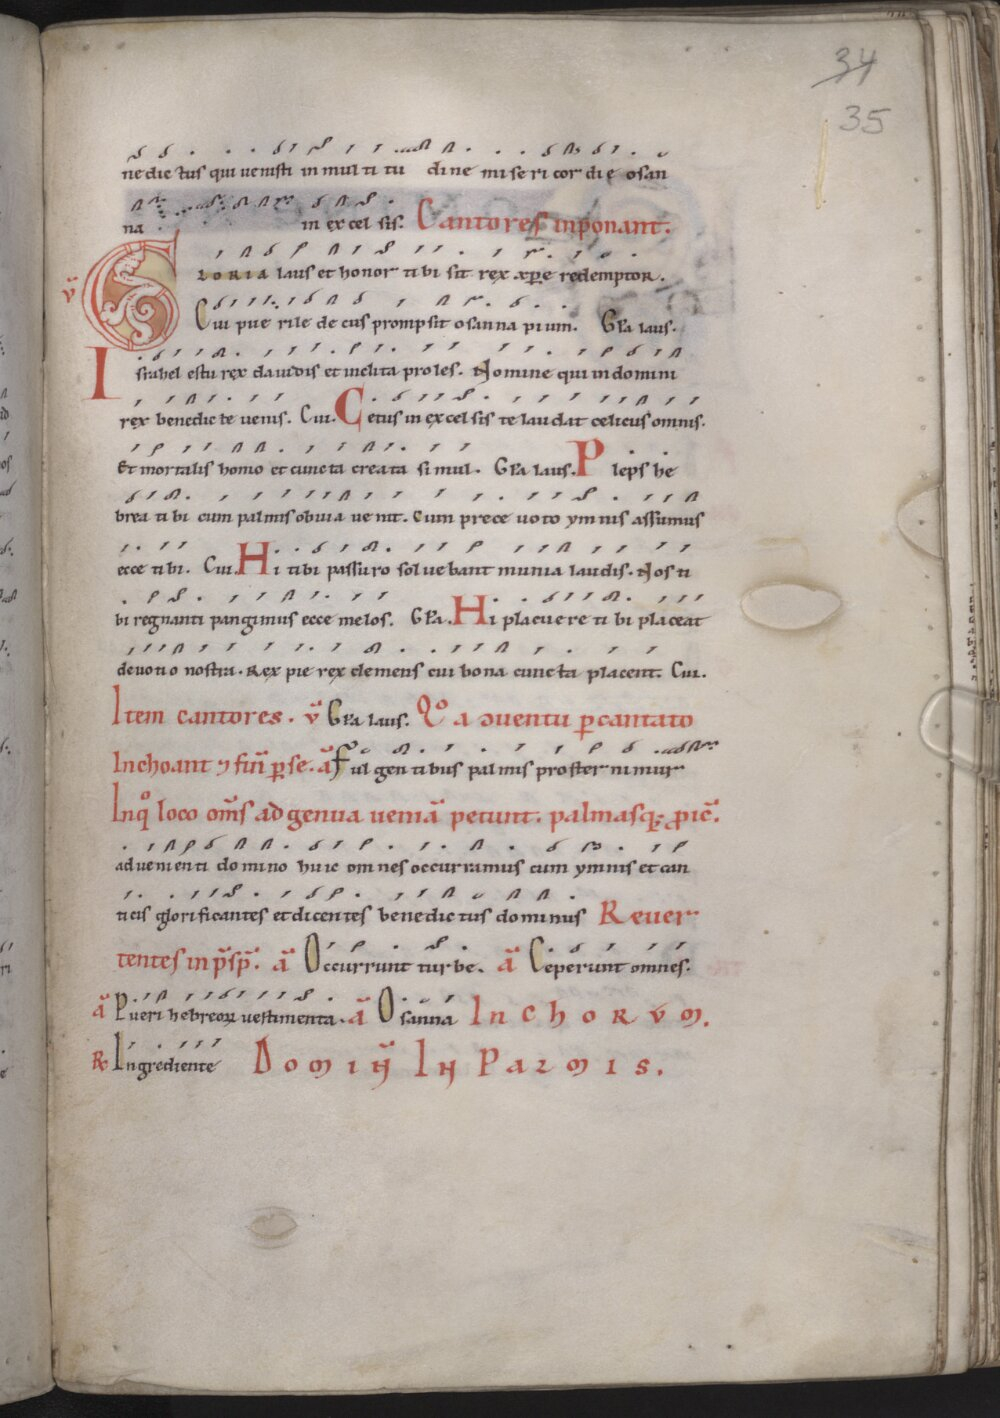 34
35
nedictus qui uenisti in multitudine misericordie osan
na in excelsis. Cantores inponant.
v̄ GLORIA laus et honor tibi sit rex xp̄e redemptor.
Cui puerile decus prompsit osanna pium. Gl̄a laus.
Israhel es tu rex dauidis et inclita proles. Nomine qui in domini
rex benedicte uenis. Cui. Cetus in excelsis te laudat celicus omnis.
Et mortalis homo et cuncta creata simul. Gl̄a laus. Plebs he
brea tibi cum palmis obuia uenit. Cum prece uoto ymnis assumus
ecce tibi. Cui. Hi tibi passuro soluebant munia laudis. Nos ti
bi regnanti pangimus ecce melos. Gl̄a. Hi placuere tibi placeat
deuotio nostra. Rex pie rex clemens cui bona cuncta placent. Cui.
Item cantores. v̄ Gl̄a laus. Qͦ aduentu p̱cantato
Inchoant ⁊ fiūt p̱ se. ā Fulgentibus palmis prosternimur
In qͦ loco om̄s ad genua ueniā petunt. palmasq; ꝓic̄.
aduenienti domino huic omnes occurramus cum ymnis et can
ticis glorificantes et dicentes benedictus dominus Reuer
tentes in p̄sp̄. ā Occurrunt turbe. ā Ceperunt omnes.
ā Pueri hebreoꝝ uestimenta. ā Osanna In chorum.
℟ Ingrediente DominI In Palmis.